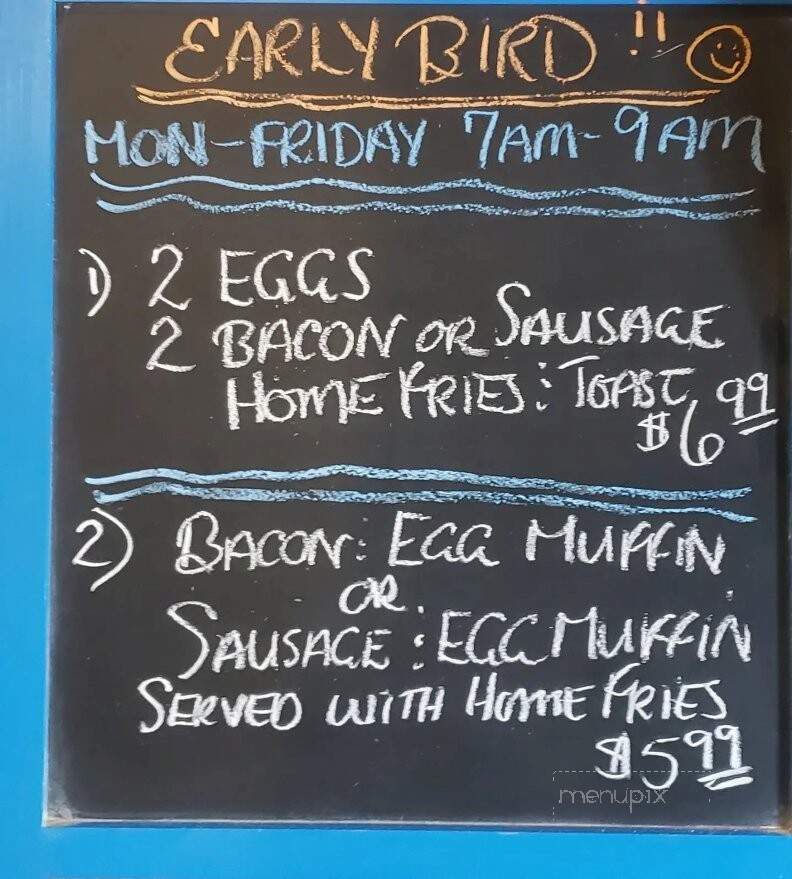 EARLY BIRD !!
MON-FRIDAY 7AM-9AM
1) 2 EGGS
2 BACON OR SAUSAGE
HOME FRIES : TOAST
$6.99
2) BACON : EGG MUFFIN
OR
SAUSAGE : EGG MUFFIN
SERVED WITH HOME FRIES
$5 99
menupix